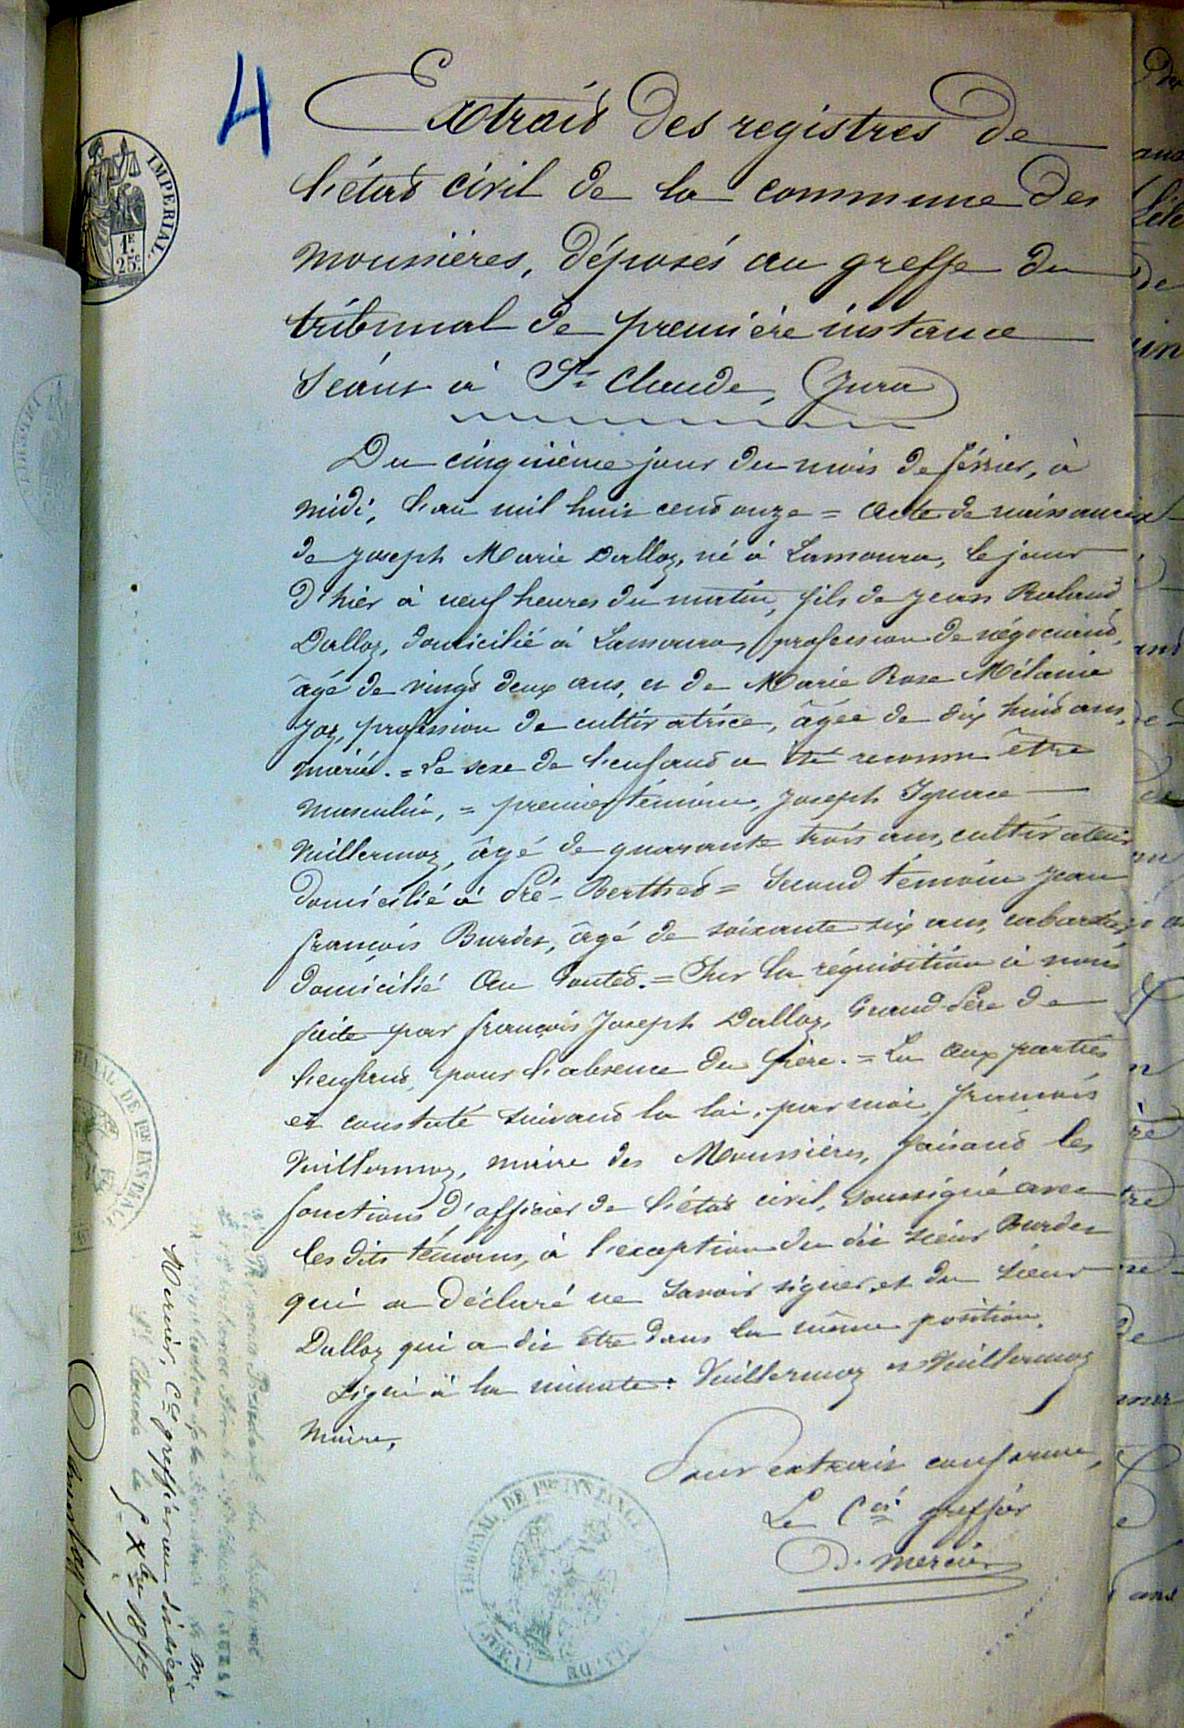 4
IMPERIAL.
1F.
25c.
Extrait des registres de
l'état civil de la commune des
moussières, déposés au greffe du
tribunal de première instance
Séant à St Claude, (Jura)
Du cinquième jour du mois de février, à
midi, l'an mil huit cent onze = Acte de naissance
de Joseph Marie Dalloz, né à Lamoura, le jour
d'hier à neuf heures du matin, fils de Jean Roland
Dalloz, domicilié à Lamoura, profession de négociant,
âgé de vingt deux ans, et de Marie Rose Mélanie
Joz, profession de cultivatrice, âgée de dix huit ans,
mariés. = Le sexe de l'enfant a été reconnu être
masculin, = premier témoin, Joseph Ignace
Vuillermoz, âgé de quarante trois ans, cultivateur
domicilié à Pré-Berthet = Second témoin Jean
françois Burdet, âgé de soixante six ans,
domicilié Au = Sur la réquisition à nous
faite par françois Joseph Dalloz, Grand-Père de
l'enfant, pour l'absence du père. = Lu aux parties
et constaté suivant la loi, par moi, françois
Vuillermoz, maire des Moussières, faisant les
fonctions d'officier de l'état civil, soussigné avec
les dits témoins, à l'exception du dit sieur Burdet
qui a déclaré ne savoir signer, et du sieur
Dalloz qui a dit être dans la même position.
Signé à la minute: Vuillermoz et Vuillermoz
maire,
Pour extrait conforme,
Le Cis greffier
D. Mercier
TRIBUNAL DE 1RE INSTANCE
(JURA)
TRIBUNAL DE 1RE INSTANCE
Mercier, Cis greffier au dit siège
St Claude le 5 Xbre